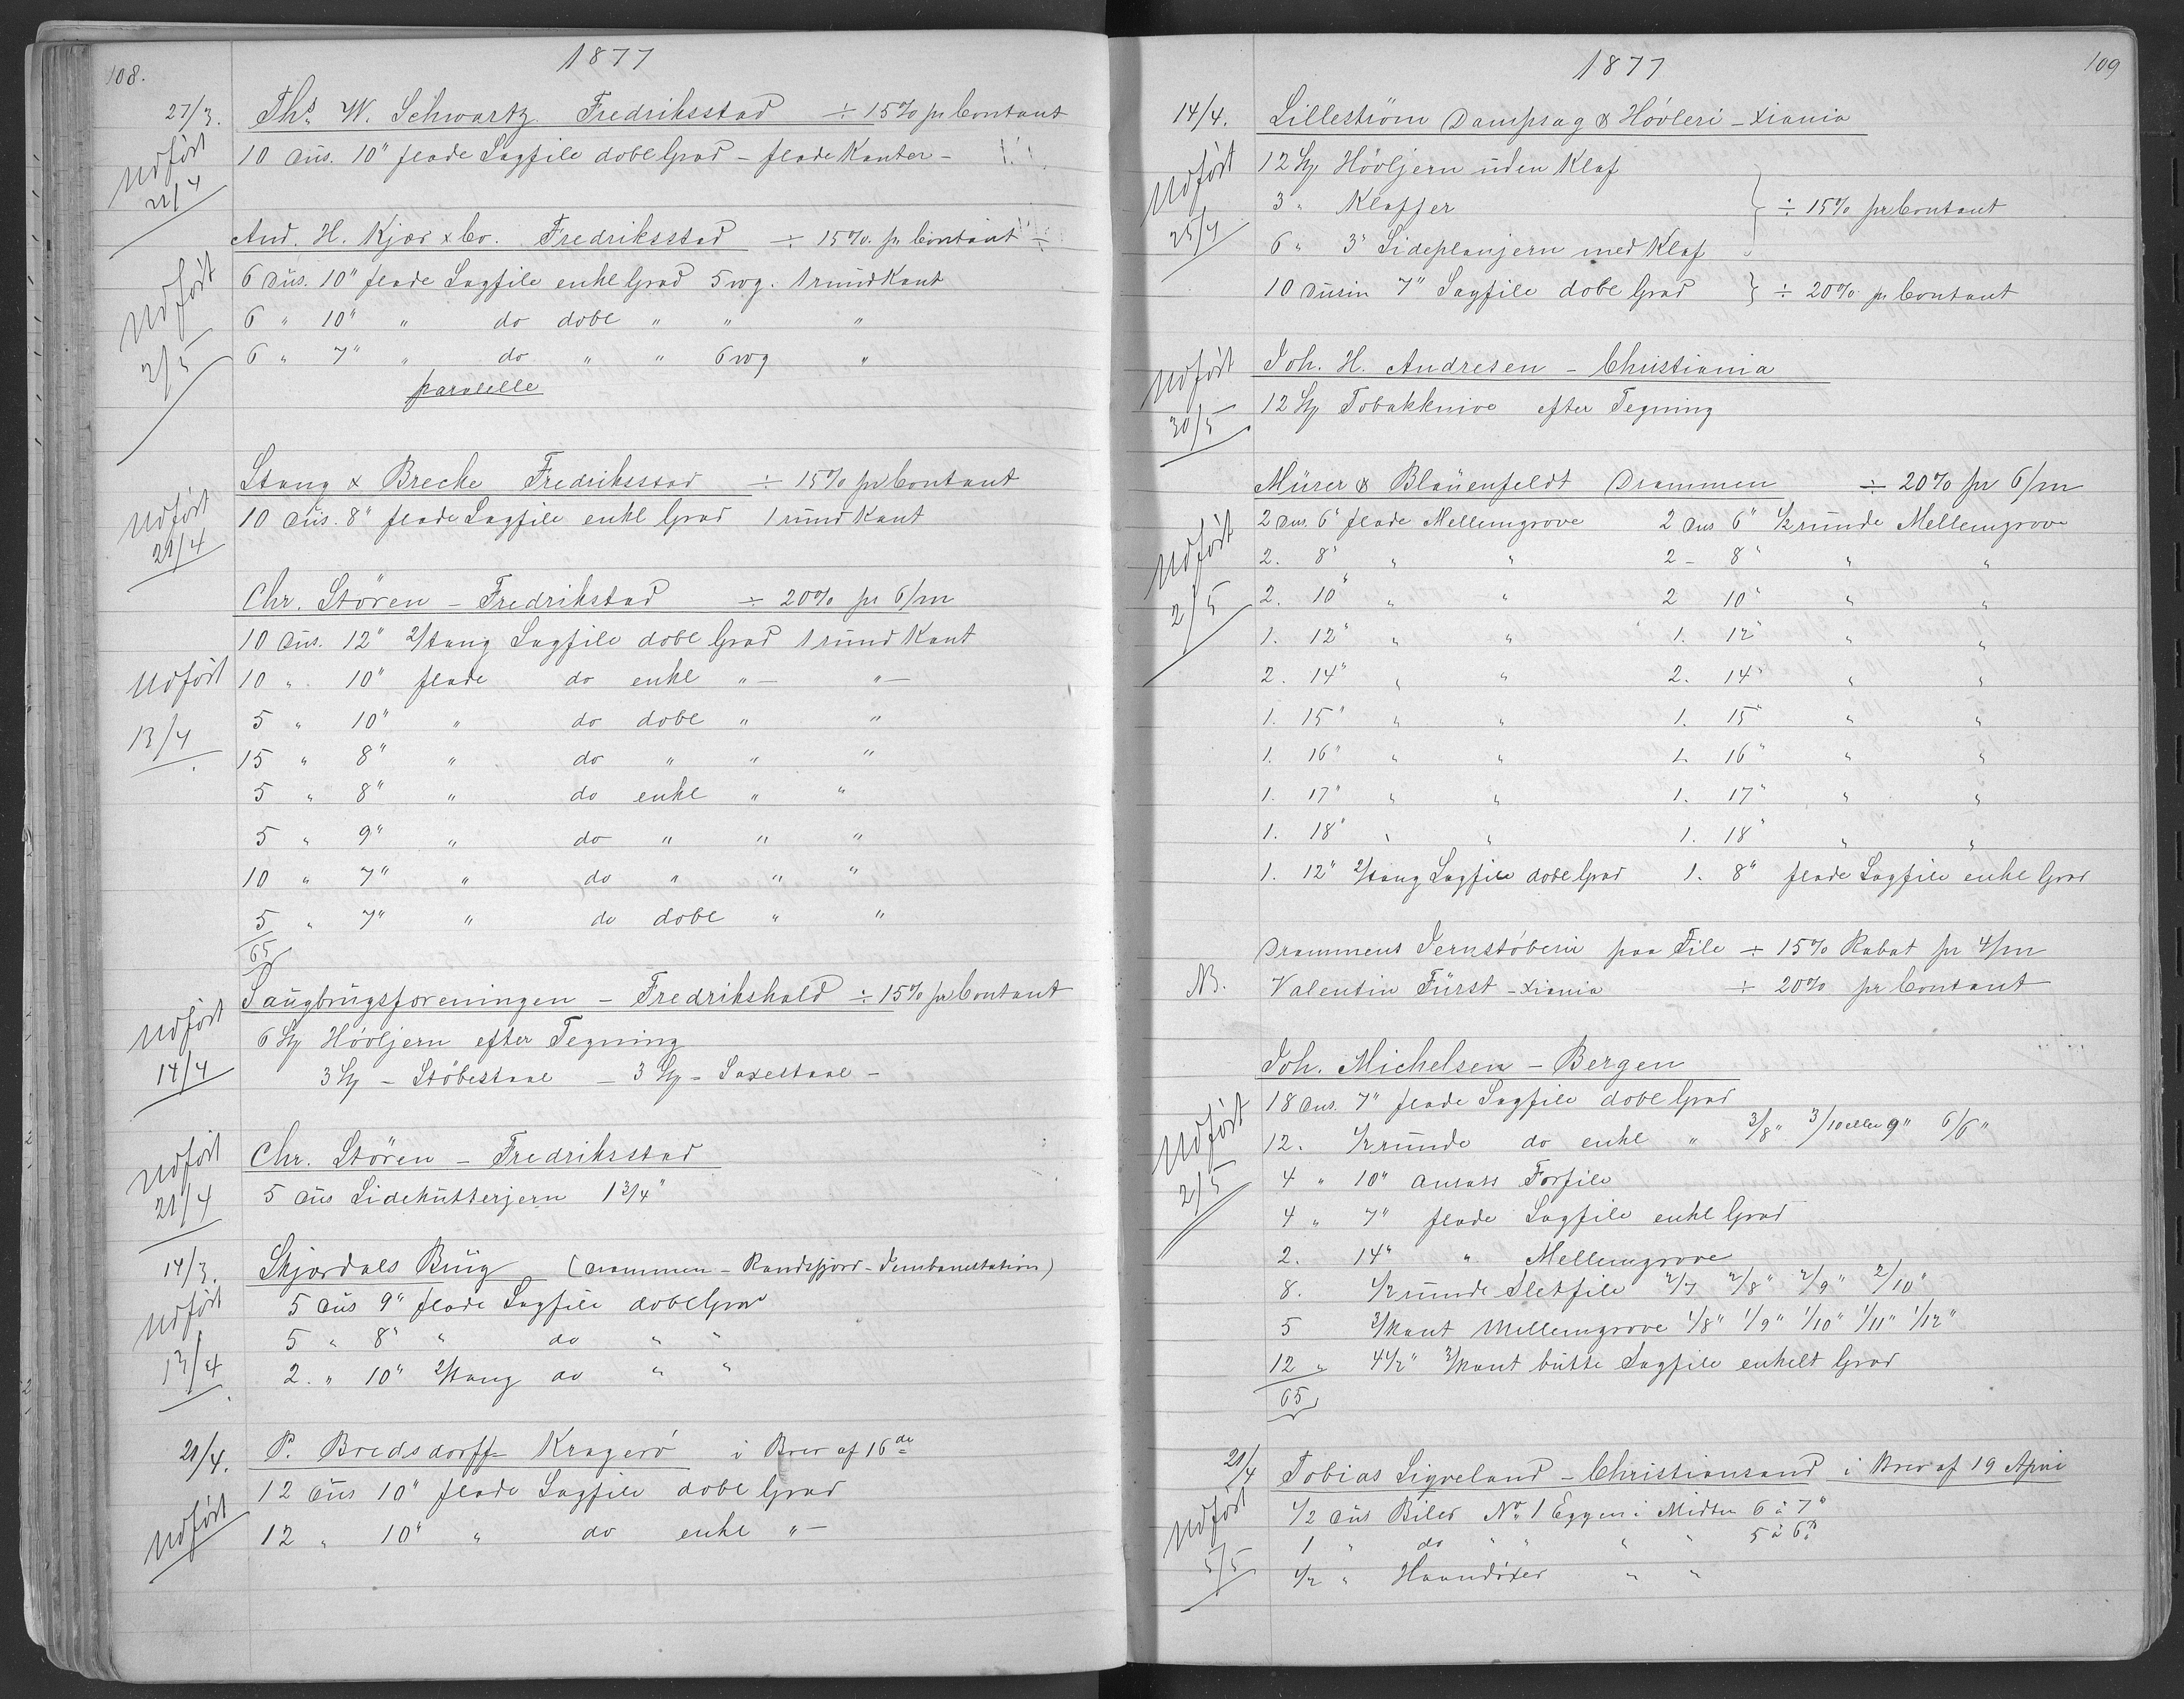 108.
1877
27/3. Ths. W. Schwartz Fredriksstad ÷ 15% pr Contant
Udført 10 Düs. 10" flade Sagfile dobl Grad - flade Kanter -
21/4
And. H. Kjær & Co. Fredriksstad ÷ 15%. pr Contant
6 Düs. 10" flade Sagfile enkl Grad 5 wg. 1 rund Kant
Udført 6 " 10" " do dobl " " "
2/5 6 " 7" " do " " 6 wg "
paralelle
Stang & Breche Fredriksstad ÷ 15% pr Contant
Udført 10 Düs. 8" flade Sagfile enkl Grad 1 rund Kant
21/4
Chr. Stören - Fredrikstad ÷ 20% pr 6/m
10 Düs. 12" 2/tang Sagfile dobl Grad 1 rund Kant
Udført 10 " 10" flade do enkl " — " —
13/4 5 " 10" " do dobl " "
15 " 8" " do " " "
5 " 8" " do enkl " "
5 " 9" " do " " "
10 " 7" " do " " "
5 " 7" " do dobl " "
65
Saugbrugsforeningen - Fredrikshald ÷ 15% pr Contant
Udført 6 Stp Høvljern efter Tegning
14/4 3 Stp - Støbestaal - 3 Stp - Saxestaal -
Udført Chr. Stören - Fredriksstad
21/4 5 Düs Sidekutterjern 1 3/4"
14/3. Skjørdals Brug (Drammen - Randsfjord - Jernbanestation)
Udført 5 Düs 9" flade Sagfile dobl Grad
5 " 8" " do " "
13/4 2. " 10" 2/tang do " "
21/4. P. Bredsdorff Kragerö i Brev af 16de
12 Düs 10" flade Sagfile dobl Grad
Udført 12 " 10" " do enkl " —
1877
109
14/4. Lillestrøm Dampsag & Høvleri - Xiania
Udført 12 Stp Høvljern uden Klaf
3 " Klaffer } ÷ 15% pr Contant
25/4 6 " 3" Sideplanjern med Klaf
10 Dusin 7" Sagfile dobl Grad } ÷ 20% pr Contant
Udført Joh. H. Andresen - Christiania
30/5 12 Stp Tobakknive efter Tegning
Mürer & Blauenfeldt Drammen ÷ 20% pr 6/m
2 Dus. 6" flade Mellemgrove 2 Dus 6" 1/2 runde Mellemgrove
Udført 2. 8" " " 2 - 8" " "
2/5 2. 10" " " 2 10" " "
1. 12" " " 1. 12" " "
2. 14" " " 2. 14" " "
1. 15" " " 1. 15" " "
1. 16" " " 1. 16" " "
1. 17" " " 1. 17" " "
1. 18" " " 1. 18" " "
1. 12" 2/tang Sagfile dobl Grad 1. 8" flade Sagfile enkl Grad
Drammens Jernstøberi paa File ÷ 15% Rabat pr 4/m
NB. Valentin Fürst - Xiania ÷ 20% pr Contant
Joh. Michelsen - Bergen
18 Dus. 7" flade Sagfile dobl Grad
Udført 12. 1/2 runde do enkl " 3/8" 3/10 eller 9" 6/6"
2/5 4 " 10" Ansats Forfile
4 " 7" flade Sagfile enkl Grad
2. 14" " Mellemgrove
8. 1/2 runde Sletfile 2/7 2/8" 2/9" 2/10"
5 3/kant Mellemgrove 1/8" 1/9" 1/10" 1/11" 1/12"
12 " 4 1/2" 3/kant butte Sagfile enkelt Grad
65
21/4 Tobias Ligveland - Christiansand i Brev af 19 April
Udført 1/2 Düs Biler No 1 Eggen i Midten 6 à 7"
1 " do " " " " 5 à 6"
5/5 1/2 " Haandøxer " "